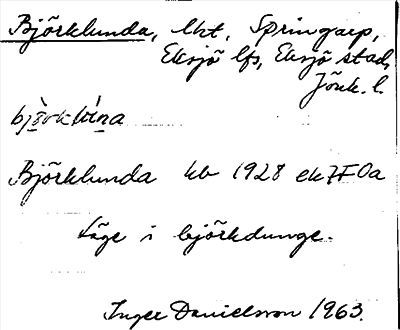 Björklunda, lht, Springarp,
Eksjö lfs, Eksjö stad,
Jönk. l.
Björklunda kb 1928 ek 7F0a
Läge i björkdunge.
Inger Danielsson 1963.